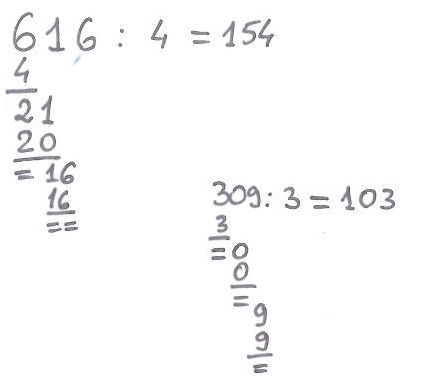 616 : 4 = 154
4
21
20
= 16
16
==
309 : 3 = 103
3
= 0
0
=
9
9
=